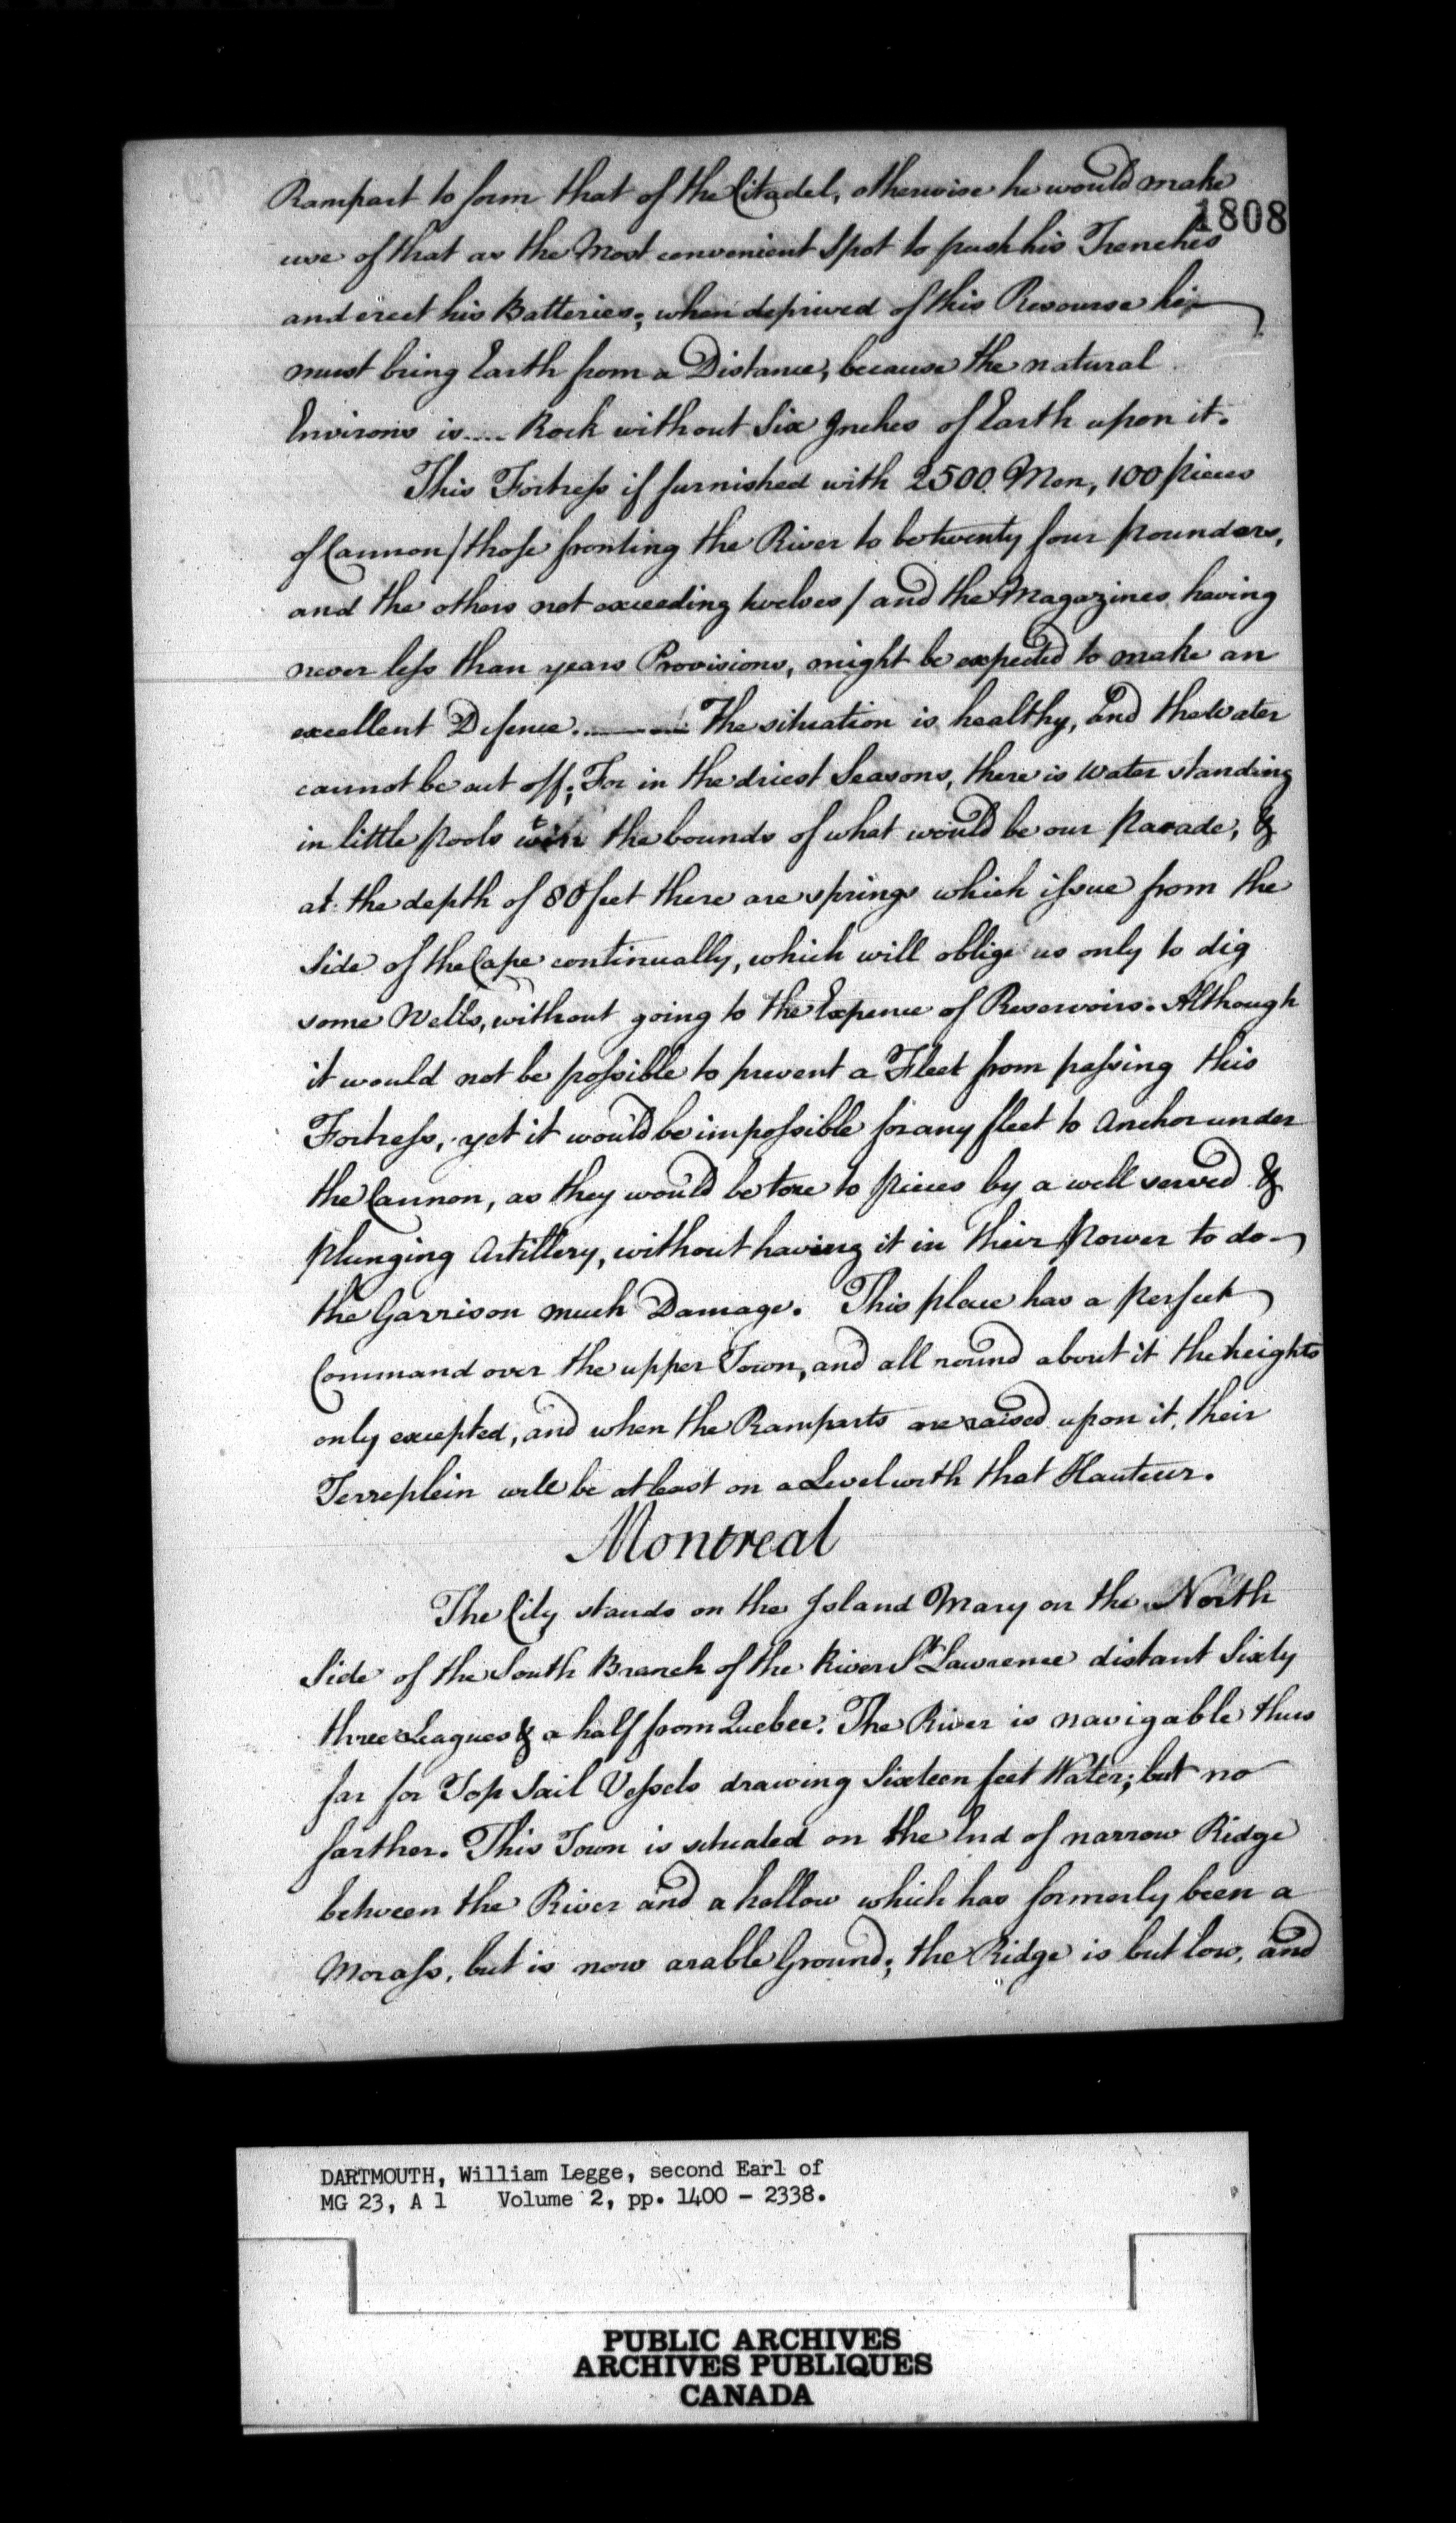 Rampart to form that of the Citadel, otherwise he would make
1808
use of that as the Most convenient Spot to push his Trenches
and erect his Batteries; when deprived of this Resourse he
must bring Earth from a Distance, because the natural
Environs is.... Rock without Six Inches of Earth upon it.
This Fortress if furnished with 2500. Men, 100 pieces
of Cannon / those fronting the River to be twenty four pounders,
and the others not exceeding twelves / and the Magazines having
never less than years Provisions, might be expected to make an
excellent Defence. The situation is healthy, and the Water
cannot be cut off; For in the driest Seasons, there is Water standing
in little pools the bounds of what would be our Parade, &
at the depth of 80 feet there are springs which issue from the
Side of the Cape continually, which will oblige us only to dig
some Wells, without going to the Expence of Reservoirs. Although
it would not be possible to prevent a Fleet from passing this
Fortress, yet it would be impossible for any fleet to Anchor under
the Cannon, as they would be tore to pieces by a well served &
plunging Artillery, without having it in their Power to do
the Garrison much Damage. This place has a perfect
Command over the upper Town, and all round about it the heights
only excepted, and when the Ramparts are raised upon it, their
Terreplein will be at least on a Level with that Hauteur.
Montreal
The City stands on the Island Mary on the North
Side of the South Branch of the River St. Lawrence distant Sixty
three Leagues & a half from Quebec. The River is navigable thus
far for Top Sail Vessels drawing Sixteen feet Water; but no
farther. This Town is situated on the End of narrow Ridge
between the River and a hollow which has formerly been a
Morass, but is now arable Ground; the Ridge is but low, and
DARTMOUTH, William Legge, second Earl of
MG 23, A 1 Volume 2, pp. 1400 - 2338.
PUBLIC ARCHIVES
ARCHIVES PUBLIQUES
CANADA